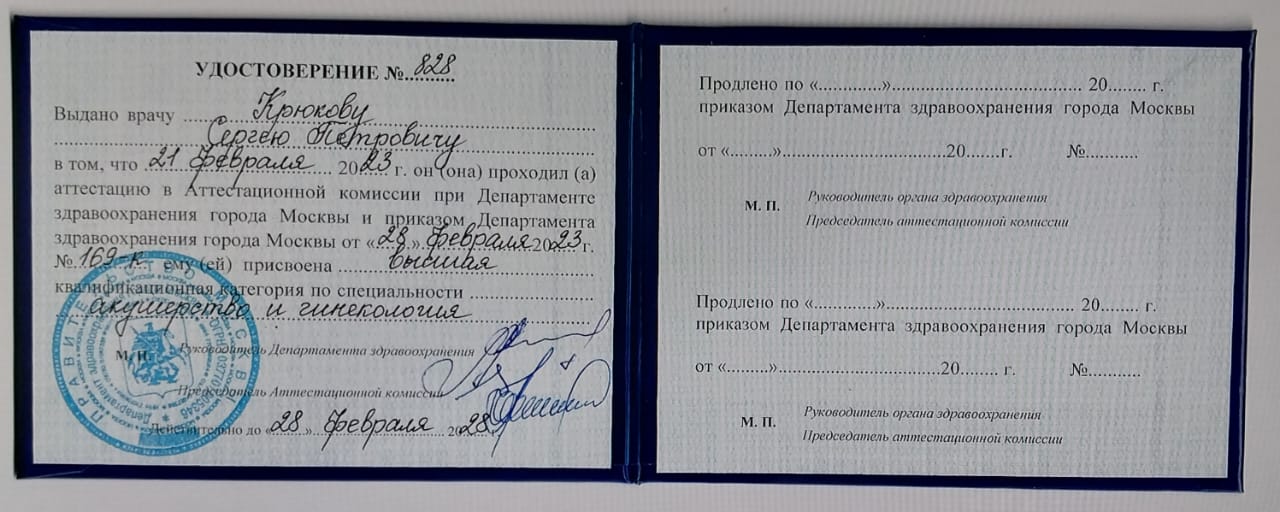 УДОСТОВЕРЕНИЕ №..828........
Выдано врачу ......Крюкову......
Сергею Петровичу
в том, что 21 февраля 2023 г. он (она) проходил (а)
аттестацию в Аттестационной комиссии при Департаменте
здравоохранения города Москвы и приказом Департамента
здравоохранения города Москвы от «28» февраля 2023г.
№169-к ему (ей) присвоена высшая
квалификационная категория по специальности
акушерство и гинекология
М. П. Руководитель Департамента здравоохранения
Председатель Аттестационной комиссии
Действительно до «28» февраля 2028
ПРАВИТЕЛЬСТВО МОСКВЫ
Продлено по «.............»...................................... 20........ г.
приказом Департамента здравоохранения города Москвы
от «.........».................................20.......г. №...........
М. П. Руководитель органа здравоохранения
Председатель аттестационной комиссии
Продлено по «.............»...................................... 20........ г.
приказом Департамента здравоохранения города Москвы
от «.........».................................20........ г. №...........
М. П. Руководитель органа здравоохранения
Председатель аттестационной комиссии